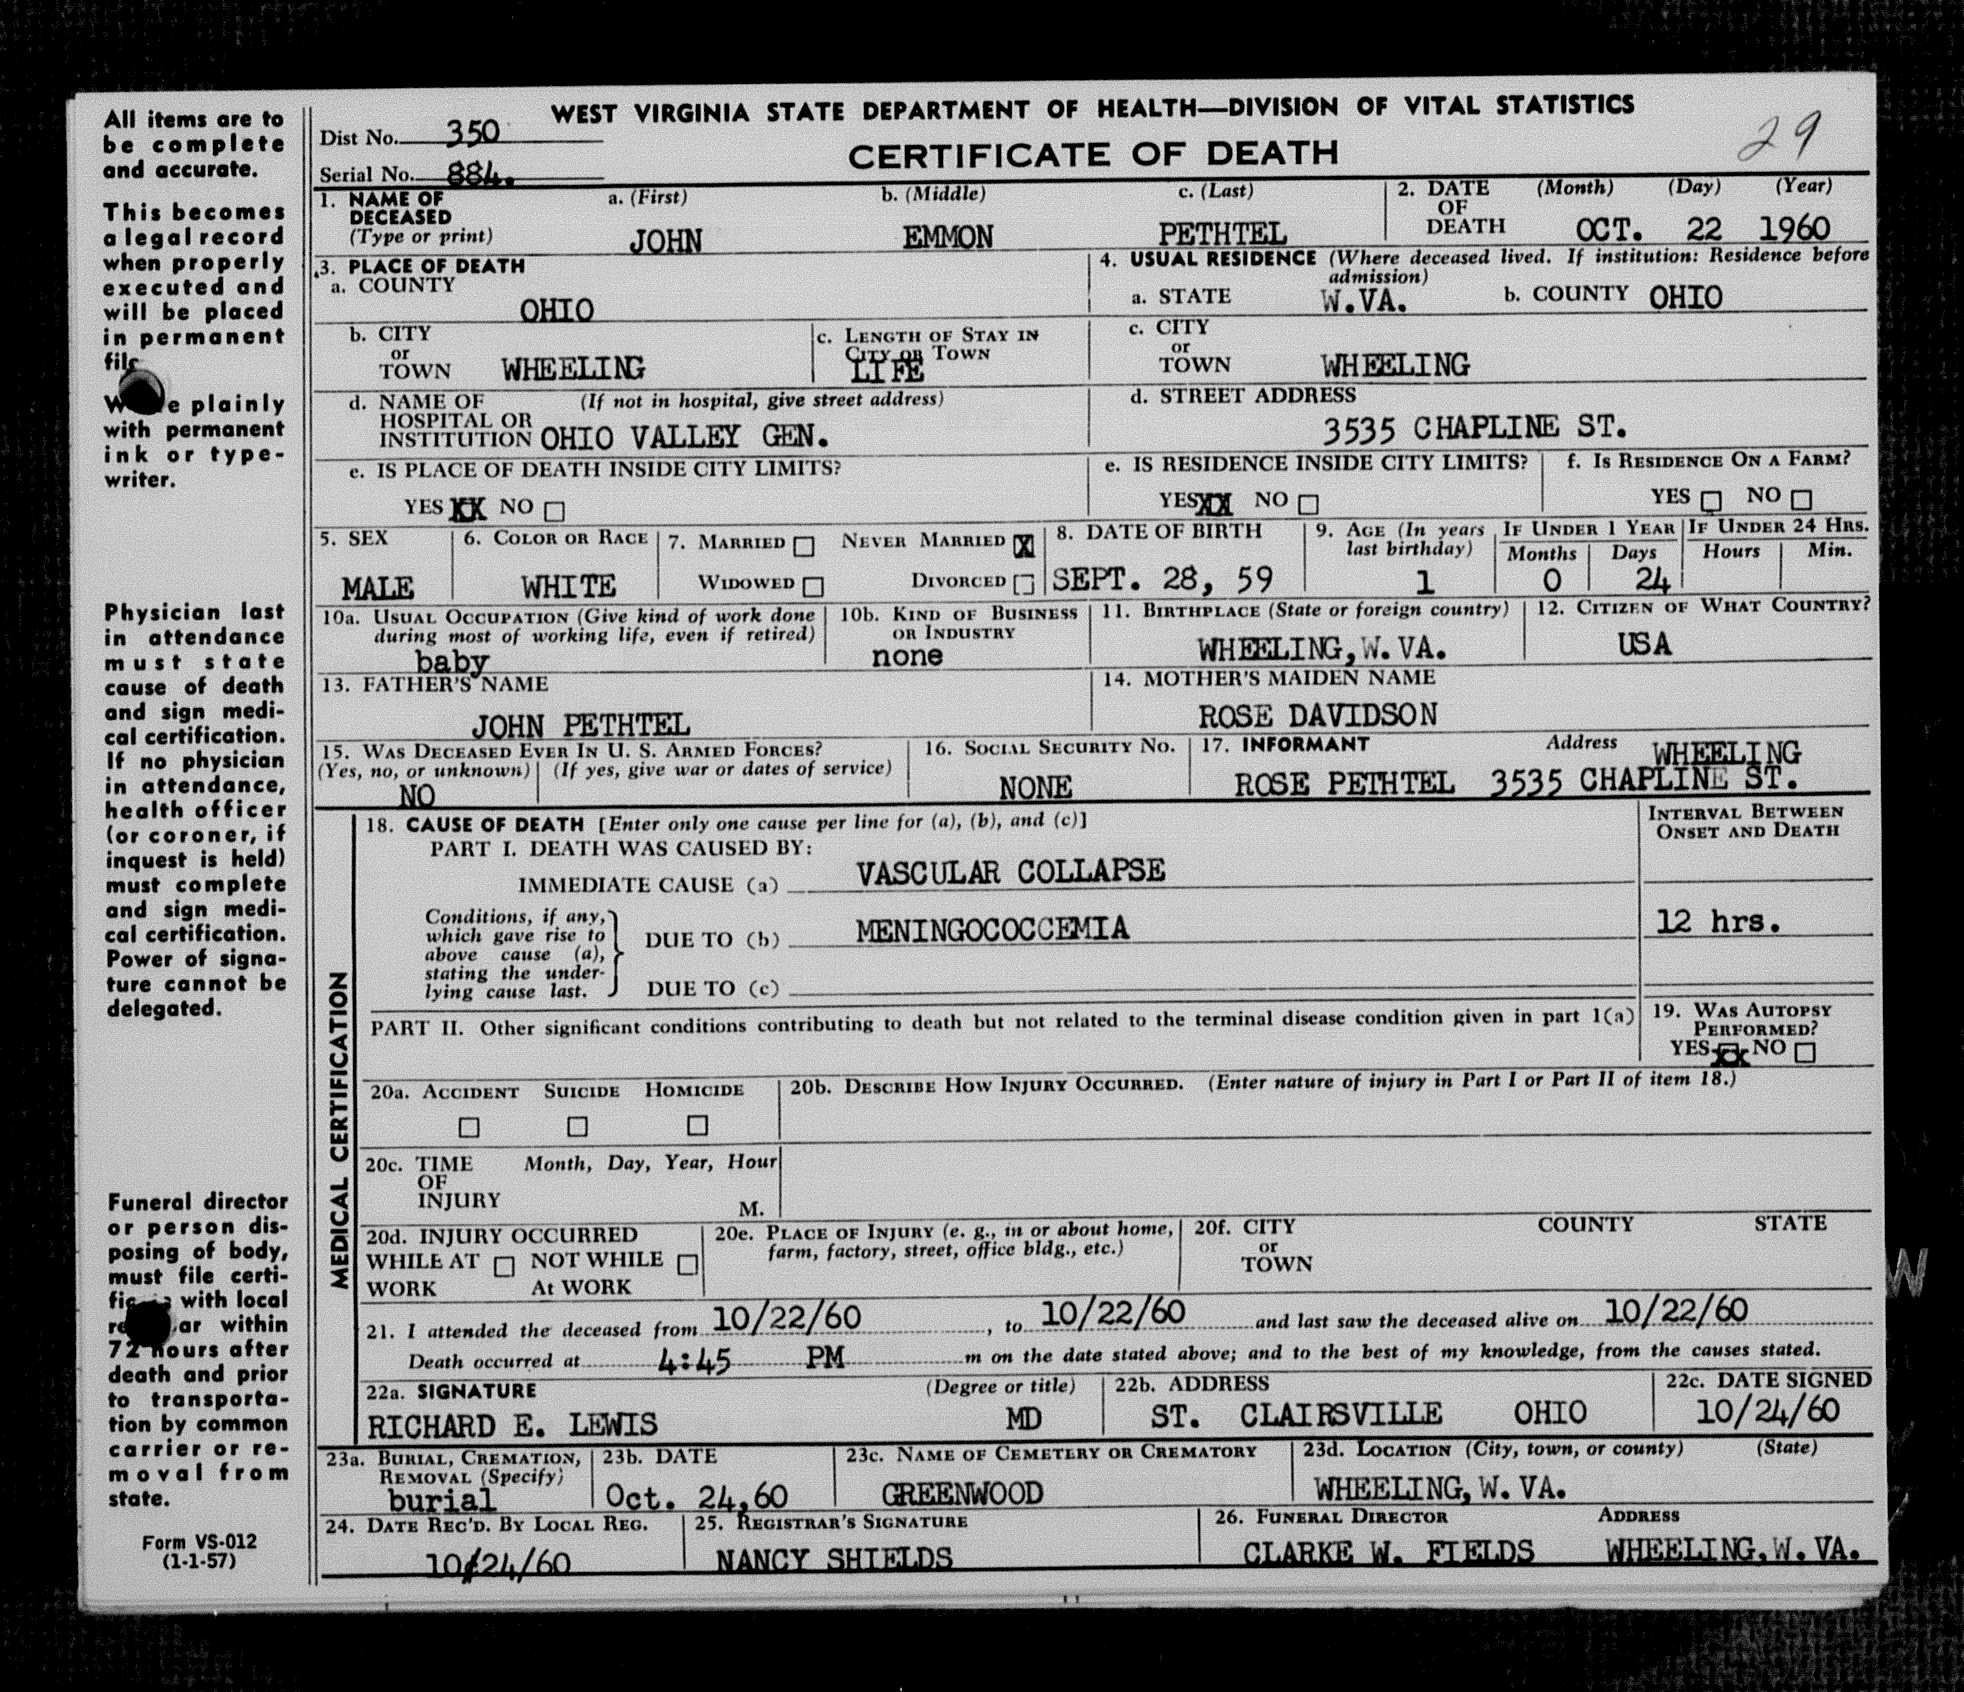 All items are to
be complete
and accurate.
This becomes
a legal record
when properly
executed and
will be placed
in permanent
file
plainly
with permanent
ink or type-
writer.
Physician last
in attendance
must state
cause of death
and sign medi-
cal certification.
If no physician
in attendance,
health officer
(or coroner, if
inquest is held)
must complete
and sign medi-
cal certification.
Power of signa-
ture cannot be
delegated.
Funeral director
or person dis-
posing of body,
must file certi-
with local
within
72 hours after
death and prior
to transporta-
tion by common
carrier or re-
moval from
state.
Form VS-012
(1-1-57)
WEST VIRGINIA STATE DEPARTMENT OF HEALTH—DIVISION OF VITAL STATISTICS
Dist No. 350
CERTIFICATE OF DEATH
29
Serial No. 884.
1. NAME OF DECEASED (Type or print) a. (First) b. (Middle) c. (Last)
JOHN EMMON PETHTEL
2. DATE OF DEATH (Month) (Day) (Year)
OCT. 22 1960
3. PLACE OF DEATH
a. COUNTY
OHIO
4. USUAL RESIDENCE (Where deceased lived. If institution: Residence before admission)
a. STATE W.VA. b. COUNTY OHIO
b. CITY or TOWN WHEELING
c. LENGTH OF STAY IN CITY OR TOWN
LIFE
c. CITY or TOWN WHEELING
d. NAME OF HOSPITAL OR INSTITUTION (If not in hospital, give street address)
OHIO VALLEY GEN.
d. STREET ADDRESS
3535 CHAPLINE ST.
e. IS PLACE OF DEATH INSIDE CITY LIMITS?
YES XX NO
e. IS RESIDENCE INSIDE CITY LIMITS?
YES XX NO
f. IS RESIDENCE ON A FARM?
YES NO
5. SEX
MALE
6. COLOR OR RACE
WHITE
7. MARRIED NEVER MARRIED X
WIDOWED DIVORCED
8. DATE OF BIRTH
SEPT. 28, 59
9. AGE (In years last birthday)
1
IF UNDER 1 YEAR
Months Days
0 24
IF UNDER 24 HRS.
Hours Min.
10a. USUAL OCCUPATION (Give kind of work done during most of working life, even if retired)
baby
10b. KIND OF BUSINESS OR INDUSTRY
none
11. BIRTHPLACE (State or foreign country)
WHEELING, W. VA.
12. CITIZEN OF WHAT COUNTRY?
USA
13. FATHER'S NAME
JOHN PETHTEL
14. MOTHER'S MAIDEN NAME
ROSE DAVIDSON
15. WAS DECEASED EVER IN U. S. ARMED FORCES?
(Yes, no, or unknown) (If yes, give war or dates of service)
NO
16. SOCIAL SECURITY NO.
NONE
17. INFORMANT Address WHEELING
ROSE PETHTEL 3535 CHAPLINE ST.
MEDICAL CERTIFICATION
18. CAUSE OF DEATH [Enter only one cause per line for (a), (b), and (c)]
INTERVAL BETWEEN ONSET AND DEATH
PART I. DEATH WAS CAUSED BY:
IMMEDIATE CAUSE (a) VASCULAR COLLAPSE
Conditions, if any,
which gave rise to
above cause (a),
stating the under-
lying cause last.
DUE TO (b) MENINGOCOCCEMIA 12 hrs.
DUE TO (c)
PART II. Other significant conditions contributing to death but not related to the terminal disease condition given in part 1(a)
19. WAS AUTOPSY PERFORMED?
YES XX NO
20a. ACCIDENT SUICIDE HOMICIDE
20b. DESCRIBE HOW INJURY OCCURRED. (Enter nature of injury in Part I or Part II of item 18.)
20c. TIME OF INJURY Month, Day, Year, Hour
M.
20d. INJURY OCCURRED
WHILE AT WORK NOT WHILE At WORK
20e. PLACE OF INJURY (e. g., in or about home, farm, factory, street, office bldg., etc.)
20f. CITY or TOWN COUNTY STATE
21. I attended the deceased from 10/22/60, to 10/22/60 and last saw the deceased alive on 10/22/60
Death occurred at 4:45 PM m on the date stated above; and to the best of my knowledge, from the causes stated.
22a. SIGNATURE (Degree or title)
RICHARD E. LEWIS MD
22b. ADDRESS
ST. CLAIRSVILLE OHIO
22c. DATE SIGNED
10/24/60
23a. BURIAL, CREMATION, REMOVAL (Specify)
burial
23b. DATE
Oct. 24,60
23c. NAME OF CEMETERY OR CREMATORY
GREENWOOD
23d. LOCATION (City, town, or county) (State)
WHEELING, W. VA.
24. DATE REC'D. BY LOCAL REG.
10/24/60
25. REGISTRAR'S SIGNATURE
NANCY SHIELDS
26. FUNERAL DIRECTOR ADDRESS
CLARKE W. FIELDS WHEELING, W. VA.
W